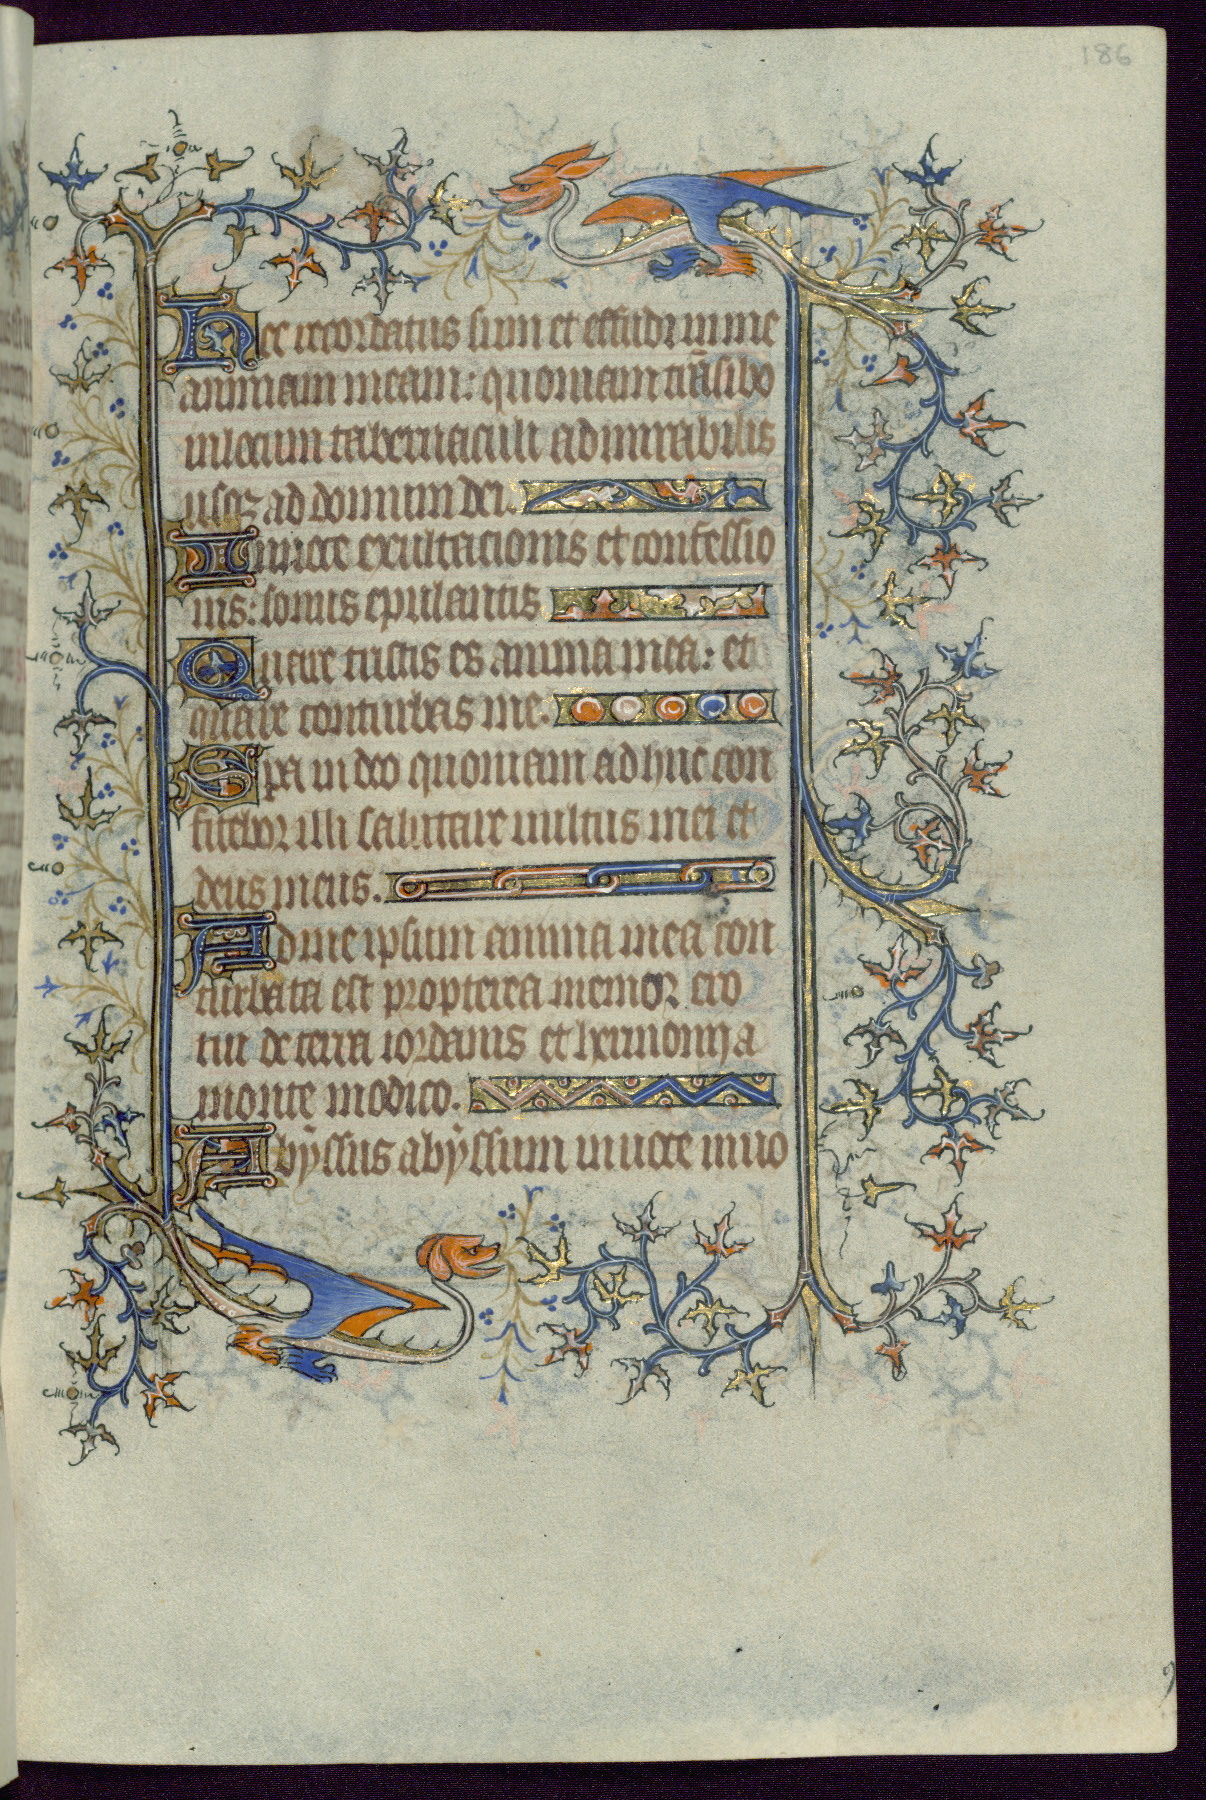 186
Hec recordatus sum et effudi in me
animam meam: quoniam trāsibo
in locum tabernaculi admirabilis
usqꝫ ad domum dei.
In uoce exultacionis et confessio
nis: sonus epulantis
Quare tristis es anima mea: et
quare conturbas me.
Spa in deo quoniam adhuc con
fitebor illi salutare uultus mei et
deus meus.
Ad me ipsum anima mea con
turbata est propterea memor ero
tui de terra iordanis et hermonij a
monte modico.
Abẏssus abẏssum inuocE in uo